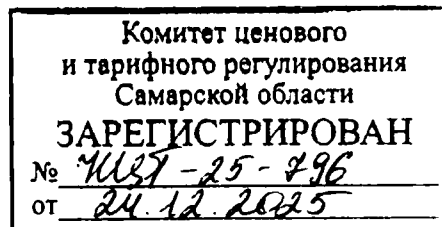 Комитет ценового
и тарифного регулирования
Самарской области
ЗАРЕГИСТРИРОВАН
№
от 24.12.2025